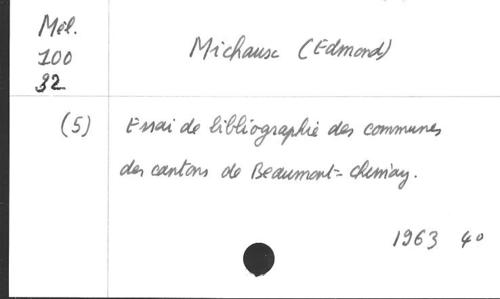 Mél.
100
32
Michaux (Edmond)
(5) Essai de bibliographie des communes
des cantons de Beaumont = Chimay.
1963 4º